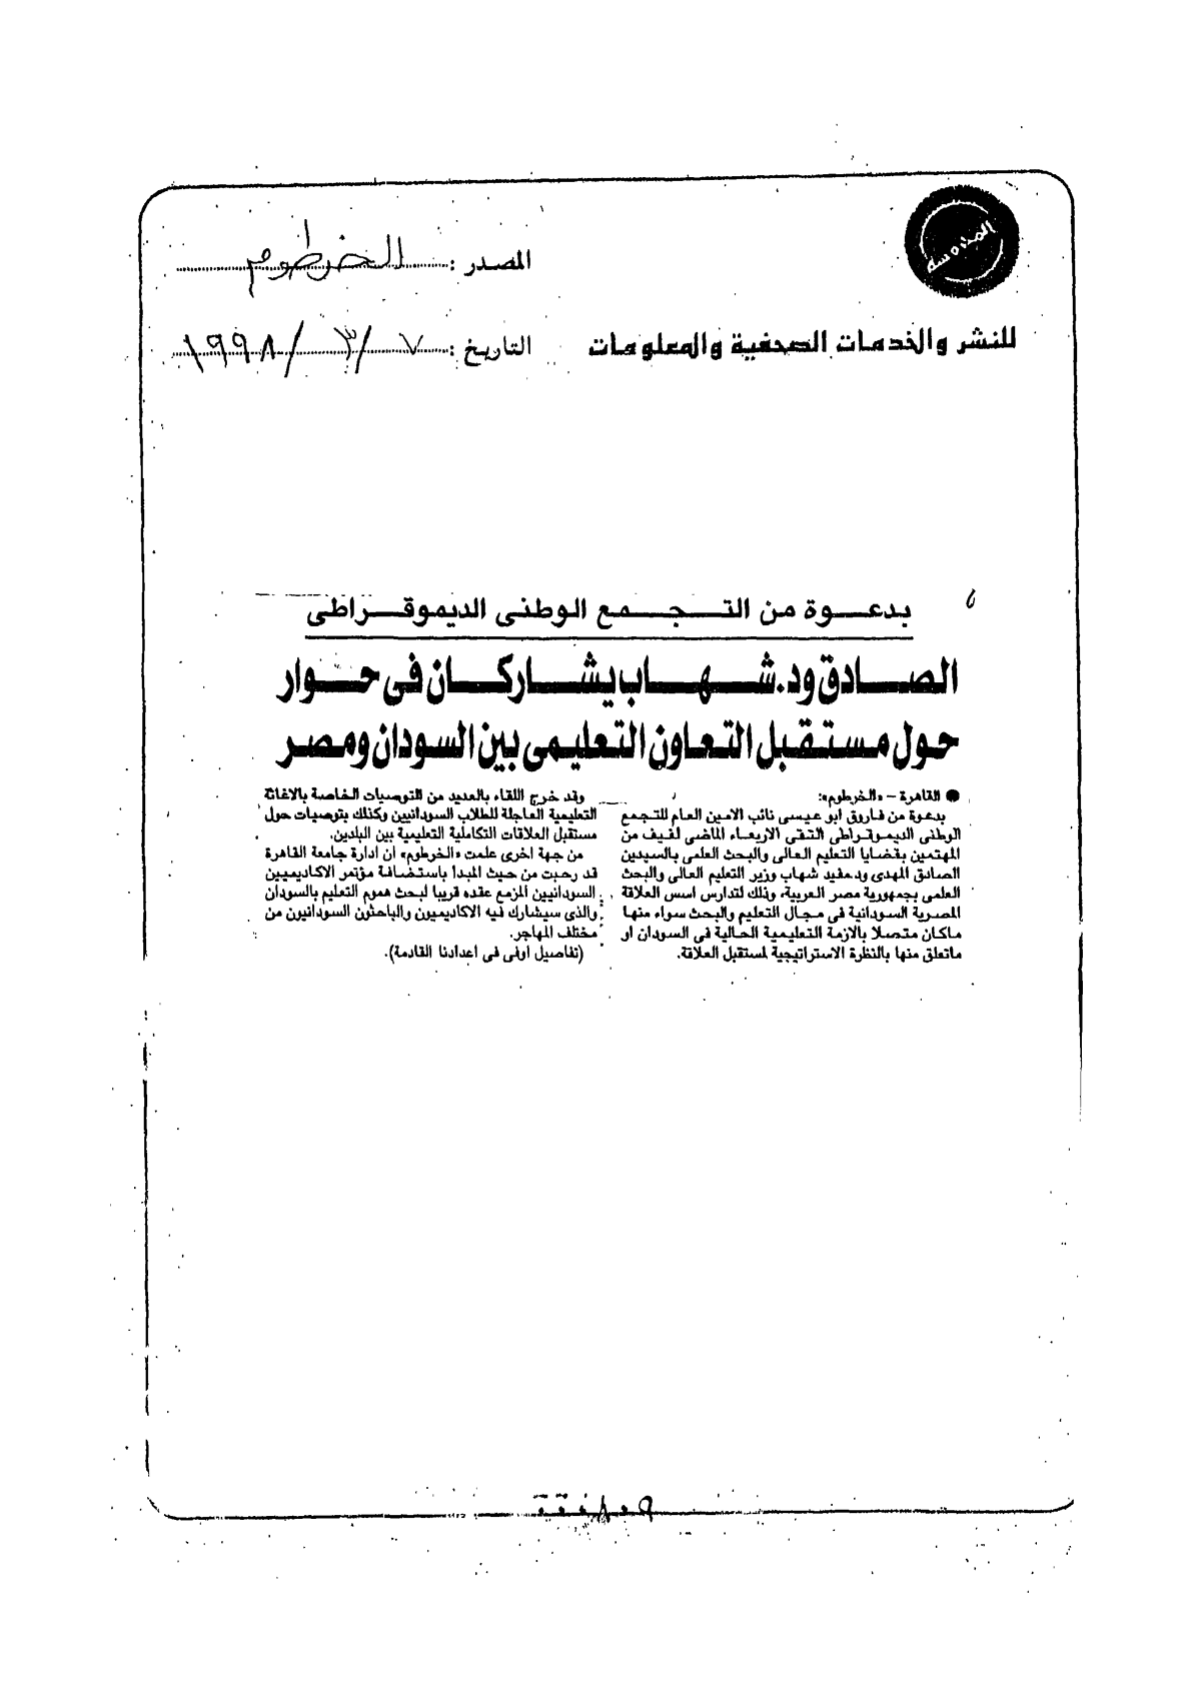 المصدر : الخرطوم
للنشر والخدمات الصحفية والمعلومات
التاريخ : ٧ / ٣ / ١٩٩٨
بدعوة من التجمع الوطنى الديموقراطى
الصادق ود. شهاب يشاركان فى حوار
حول مستقبل التعاون التعليمى بين السودان ومصر
● القاهرة – «الخرطوم»:
بدعوة من فاروق ابو عيسى نائب الامين العام للتجمع
الوطنى الديموقراطى التقى الاربعاء الماضى لفيف من
المهتمين بقضايا التعليم العالى والبحث العلمى بالسيدين
الصادق المهدى ود.مفيد شهاب وزير التعليم العالى والبحث
العلمى بجمهورية مصر العربية، وذلك لتدارس اسس العلاقة
المصرية السودانية فى مجال التعليم والبحث سواء منها
ماكان متصلا بالازمة التعليمية الحالية فى السودان او
ماتعلق منها بالنظرة الاستراتيجية لمستقبل العلاقة.
وقد خرج اللقاء بالعديد من التوصيات الخاصة بالاغاثة
التعليمية العاجلة للطلاب السودانيين وكذلك بتوصيات حول
مستقبل العلاقات التكاملية التعليمية بين البلدين.
من جهة اخرى علمت «الخرطوم» ان ادارة جامعة القاهرة
قد رحبت من حيث المبدا باستضافة مؤتمر الاكاديميين
السودانيين المزمع عقده قريبا لبحث هموم التعليم بالسودان
والذى سيشارك فيه الاكاديميون والباحثون السودانيون من
مختلف المهاجر.
(تفاصيل اوفى فى اعدادنا القادمة).